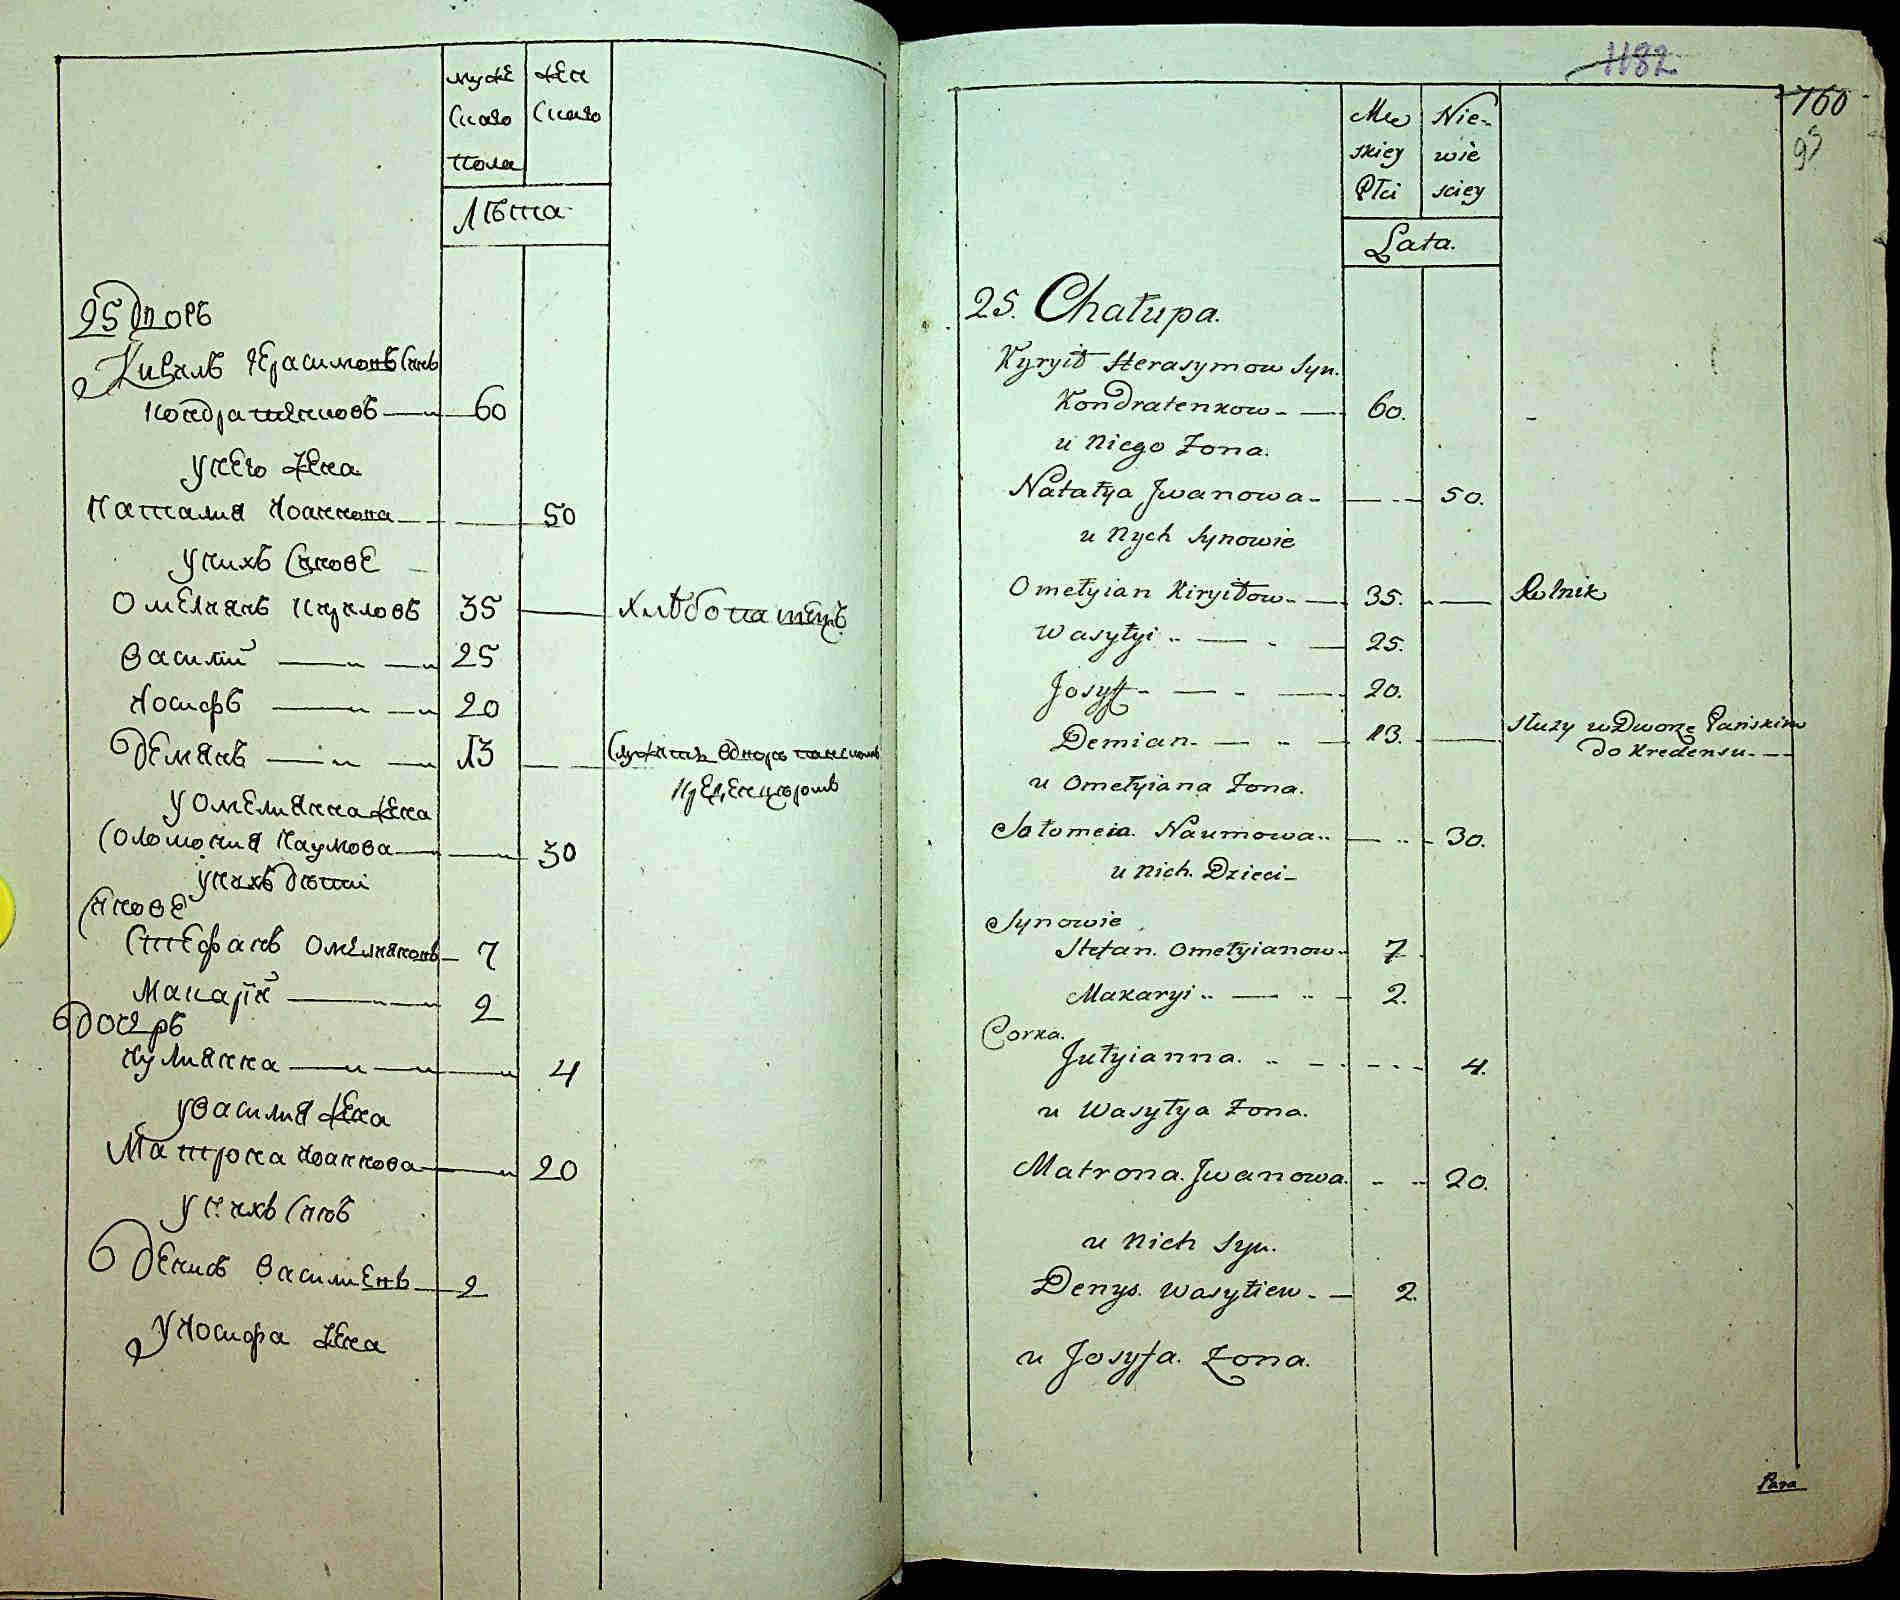 муже жен
скаго скаго
пола
Лѣта
25 Дворъ
Кирилъ Герасимовъ сынъ
Кондратенковъ 60
у него жена
Наталия Иоаннова 50
у нихъ сынове
Омелянъ Кириловъ 35 хлѣбопашецъ
Василий 25
Иосифъ 20
Демянъ 13 служитъ в дворѣ панскомъ
у Омелианна жена
Соломония Наумова 30
у нихъ дѣти
Сынове
Стефанъ Омеляновъ 7
Макарій 2
Дочерь
Иулианна 4
у Василия жена
Матрона Иоаннова 20
у нихъ сынъ
Денисъ Василиевъ 2
у Иосифа жена
1182
160
95
Mę Nie-
skiey wie
Płci sciey
Lata.
25. Chałupa.
Kyryił Herasymow Syn.
Kondratenkow 60.
u Niego Żona.
Natałya Jwanowa 50.
u Nych Synowie
Omełyian Kiryiłow 35. Rolnik
Wasyłyi 25.
Josyf 20.
Demian 13. słuzy w Dworze Pańskim
do Kredensu
u Omełyiana Żona.
Sołomeia Naumowa 30.
u Nich Dzieci
Synowie
Stefan Omełyianow 7
Makaryi 2.
Corka.
Jułyianna. 4.
u Wasyłya Żona.
Matrona Jwanowa. 20.
u Nich Syn.
Denys Wasyłiew 2.
u Josyfa Żona.
Para